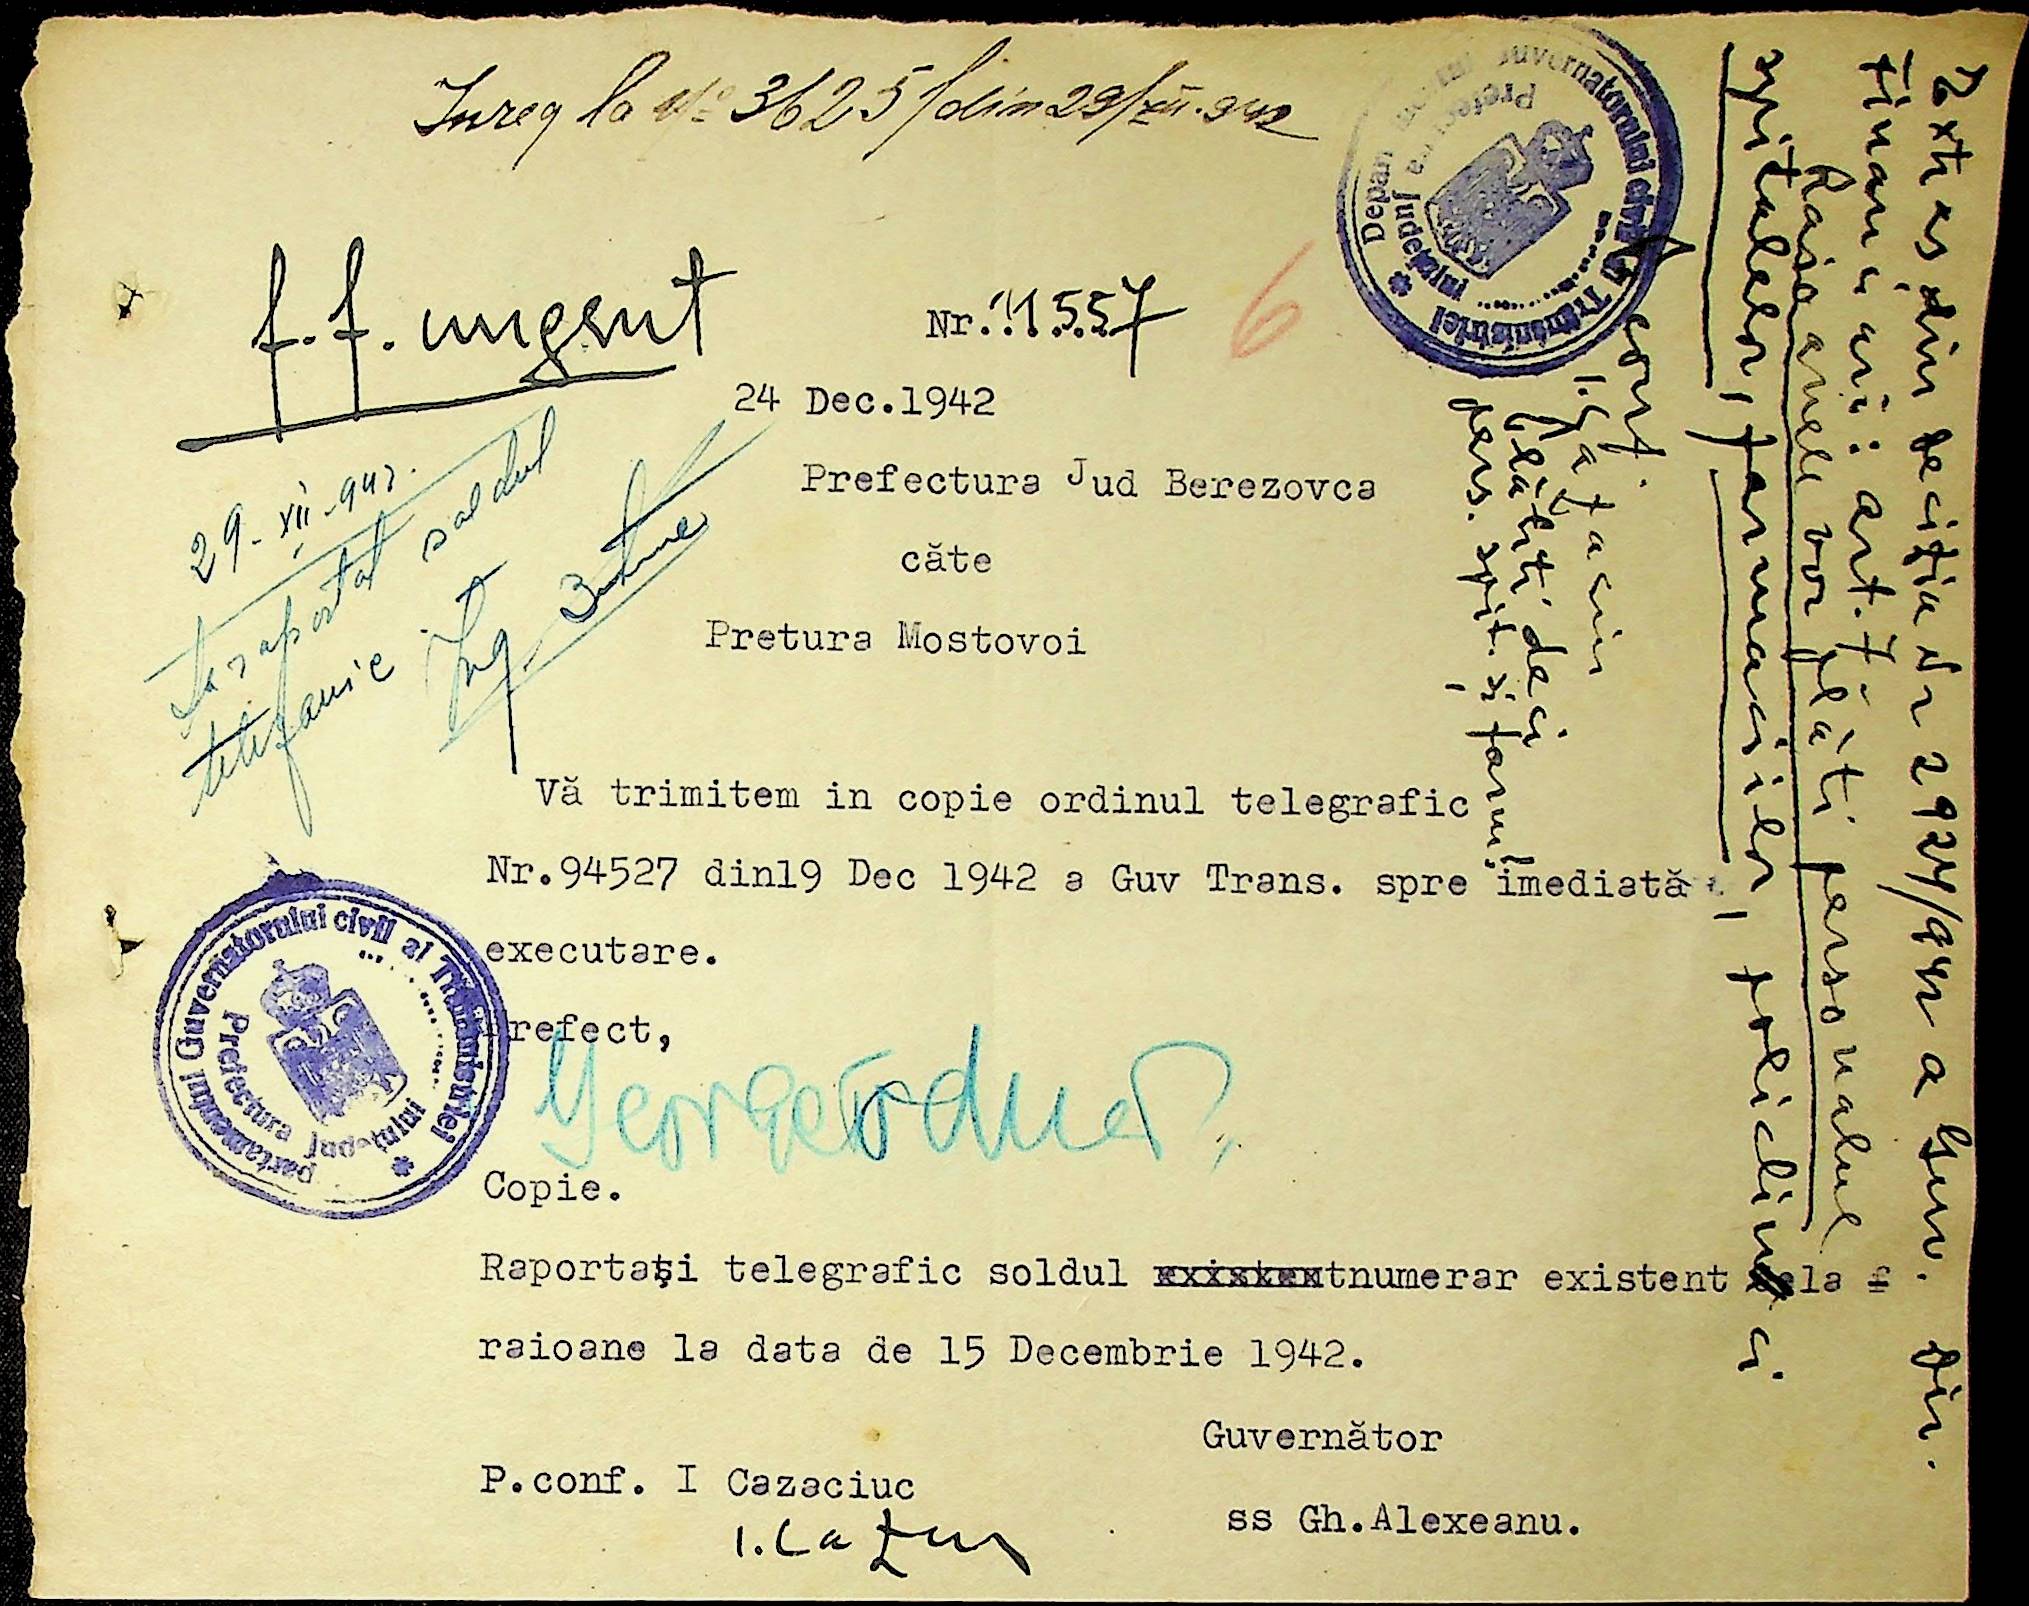 Inreg la No 3625/din 29/XII.942
f.f. urgent
Nr. 11557
6
24 Dec.1942
Prefectura Jud Berezovca
căte
Pretura Mostovoi
29-XII-942.
S'a raportat soldul
telefonic
Ing.
Vă trimitem in copie ordinul telegrafic
Nr.94527 din19 Dec 1942 a Guv Trans. spre imediată
executare.
Prefect,
Copie.
Raportaţi telegrafic soldul numerar existent la
raioane la data de 15 Decembrie 1942.
Guvernător
P.conf. I Cazaciuc
ss Gh.Alexeanu.
I. Caz
Guvernatorului civil al Transnistriei
Prefectura Judeţului
Departamentul Guvernatorului civil al Transnistriei
Prefectura Judeţului
Extras din decizia Nr 2927/942 a Guv. Dir.
Financiari: art. 7
Raioanele vor plăti personalul
spitalelor, farmaciilor, policlinici
conf.
I. Cazaciuc
Plătiti deci
pers. spit. si farm.